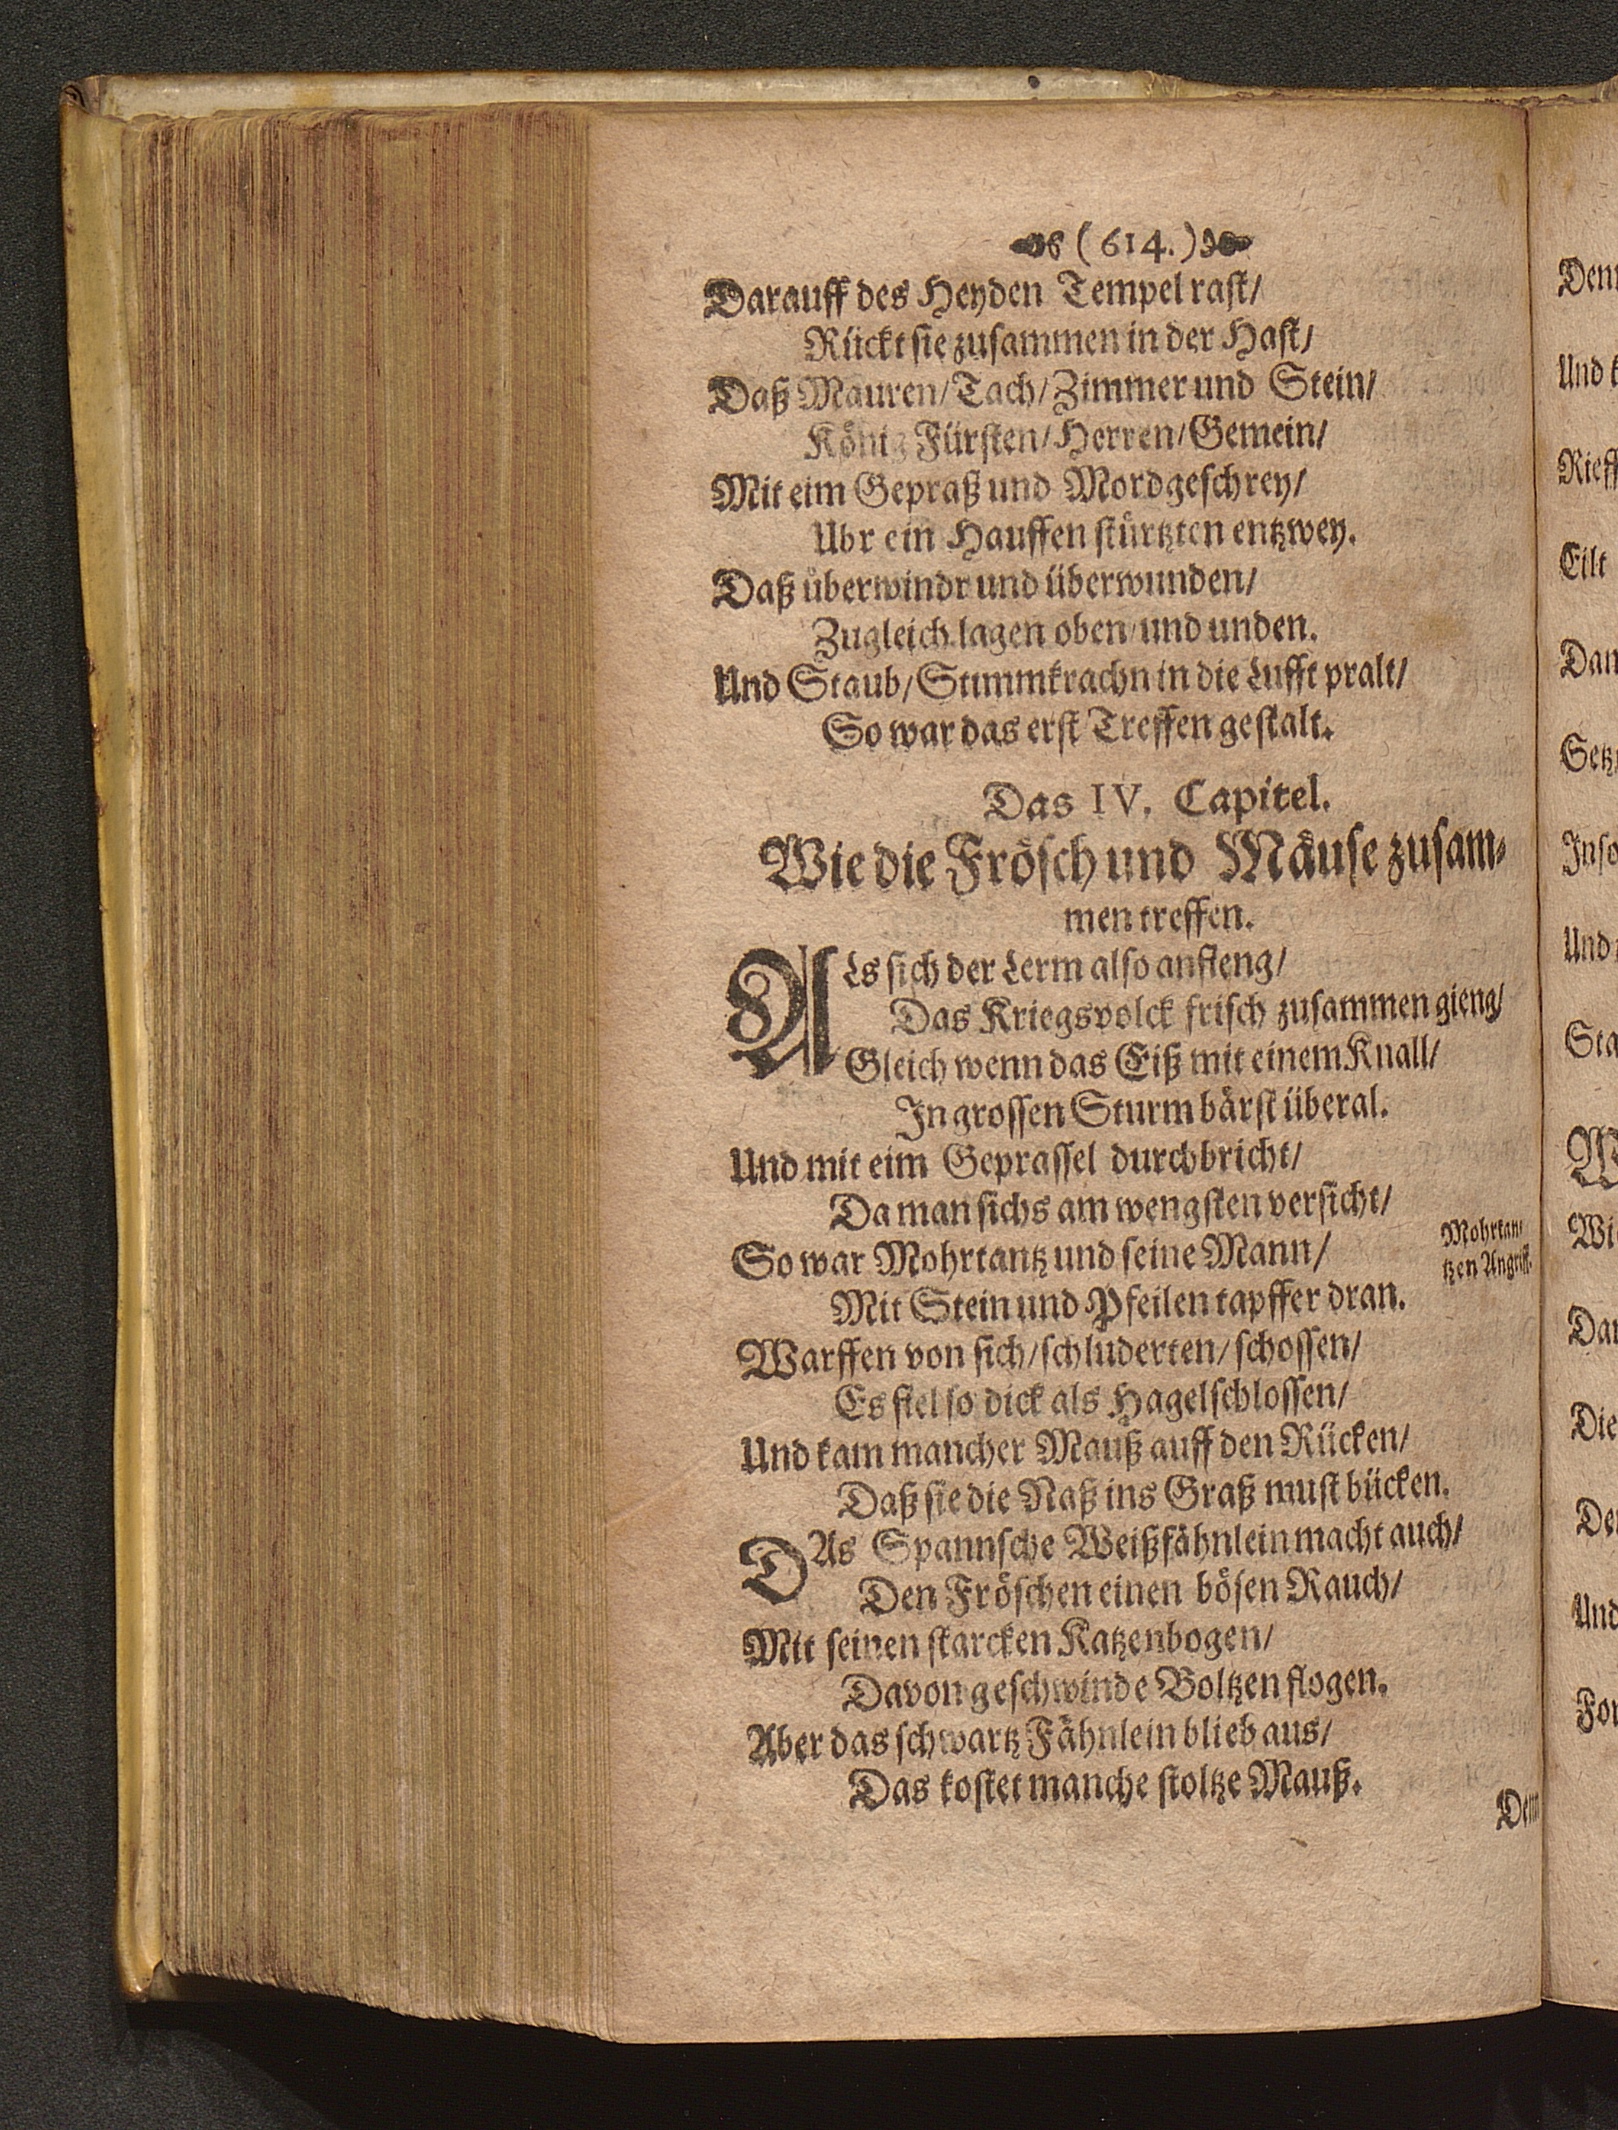 (614.)
Darauff des Heyden Tempel rast/
Rückt sie zusammen in der Hast/
Daß Mauren/Tach/Zimmer und Stein/
König Fürsten/Herren/Gemein/
Mit eim Gepraß und Mordgeschrey/
Ubr ein Hauffen stürtzten entzwey.
Daß überwindr und überwunden/
Zugleich lagen oben und unden.
Und Staub/Stimmkrachn in die Lufft pralt/
So war das erst Treffen gestalt.
Das IV. Capitel.
Wie die Frösch und Mäuse zusam-
men treffen.
ALs sich der Lerm also anfieng/
Das Kriegsvolck frisch zusammen gieng/
Gleich wenn das Eiß mit einem Knall/
In grossen Sturm bärst überal.
Und mit eim Geprassel durchbricht/
Da man sichs am wengsten versicht/
So war Mohrtantz und seine Mann/
Mohrtan-
tzen Angriff.
Mit Stein und Pfeilen tapffer dran.
Warffen von sich/schluderten/schossen/
Es fiel so dick als Hagelschlossen/
Und kam mancher Mauß auff den Rücken/
Daß sie die Naß ins Graß must bücken.
DAs Spannsche Weißfähnlein macht auch/
Den Fröschen einen bösen Rauch/
Mit seinen starcken Katzenbogen/
Davon geschwinde Boltzen flogen.
Aber das schwartz Fähnlein blieb aus/
Das kostet manche stoltze Mauß.
Und
Rieff
Eilt
Und
Die
Und